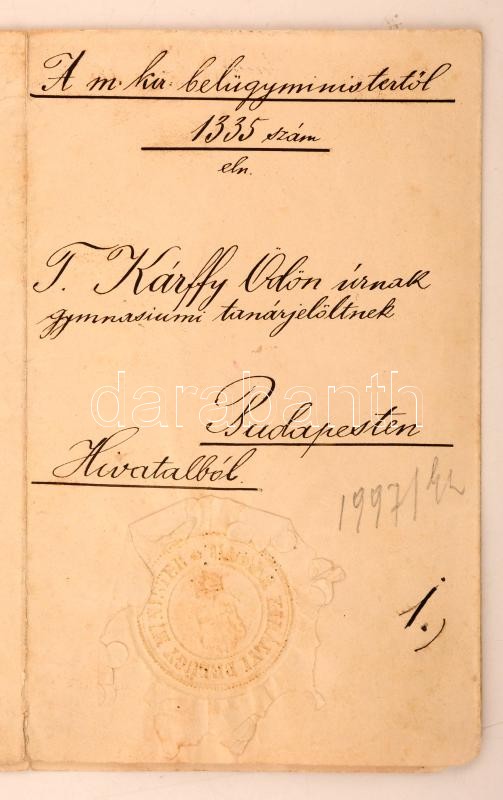 A m. kir. belügyministertől
1335 szám
eln.
T. Kárffy Ödön úrnak
gymnasiumi tanárjelöltnek
darabanth
Budapesten
Hivatalból.
1997/
MAGYAR KIRÁLYI BELÜGY MINISTER
1.)